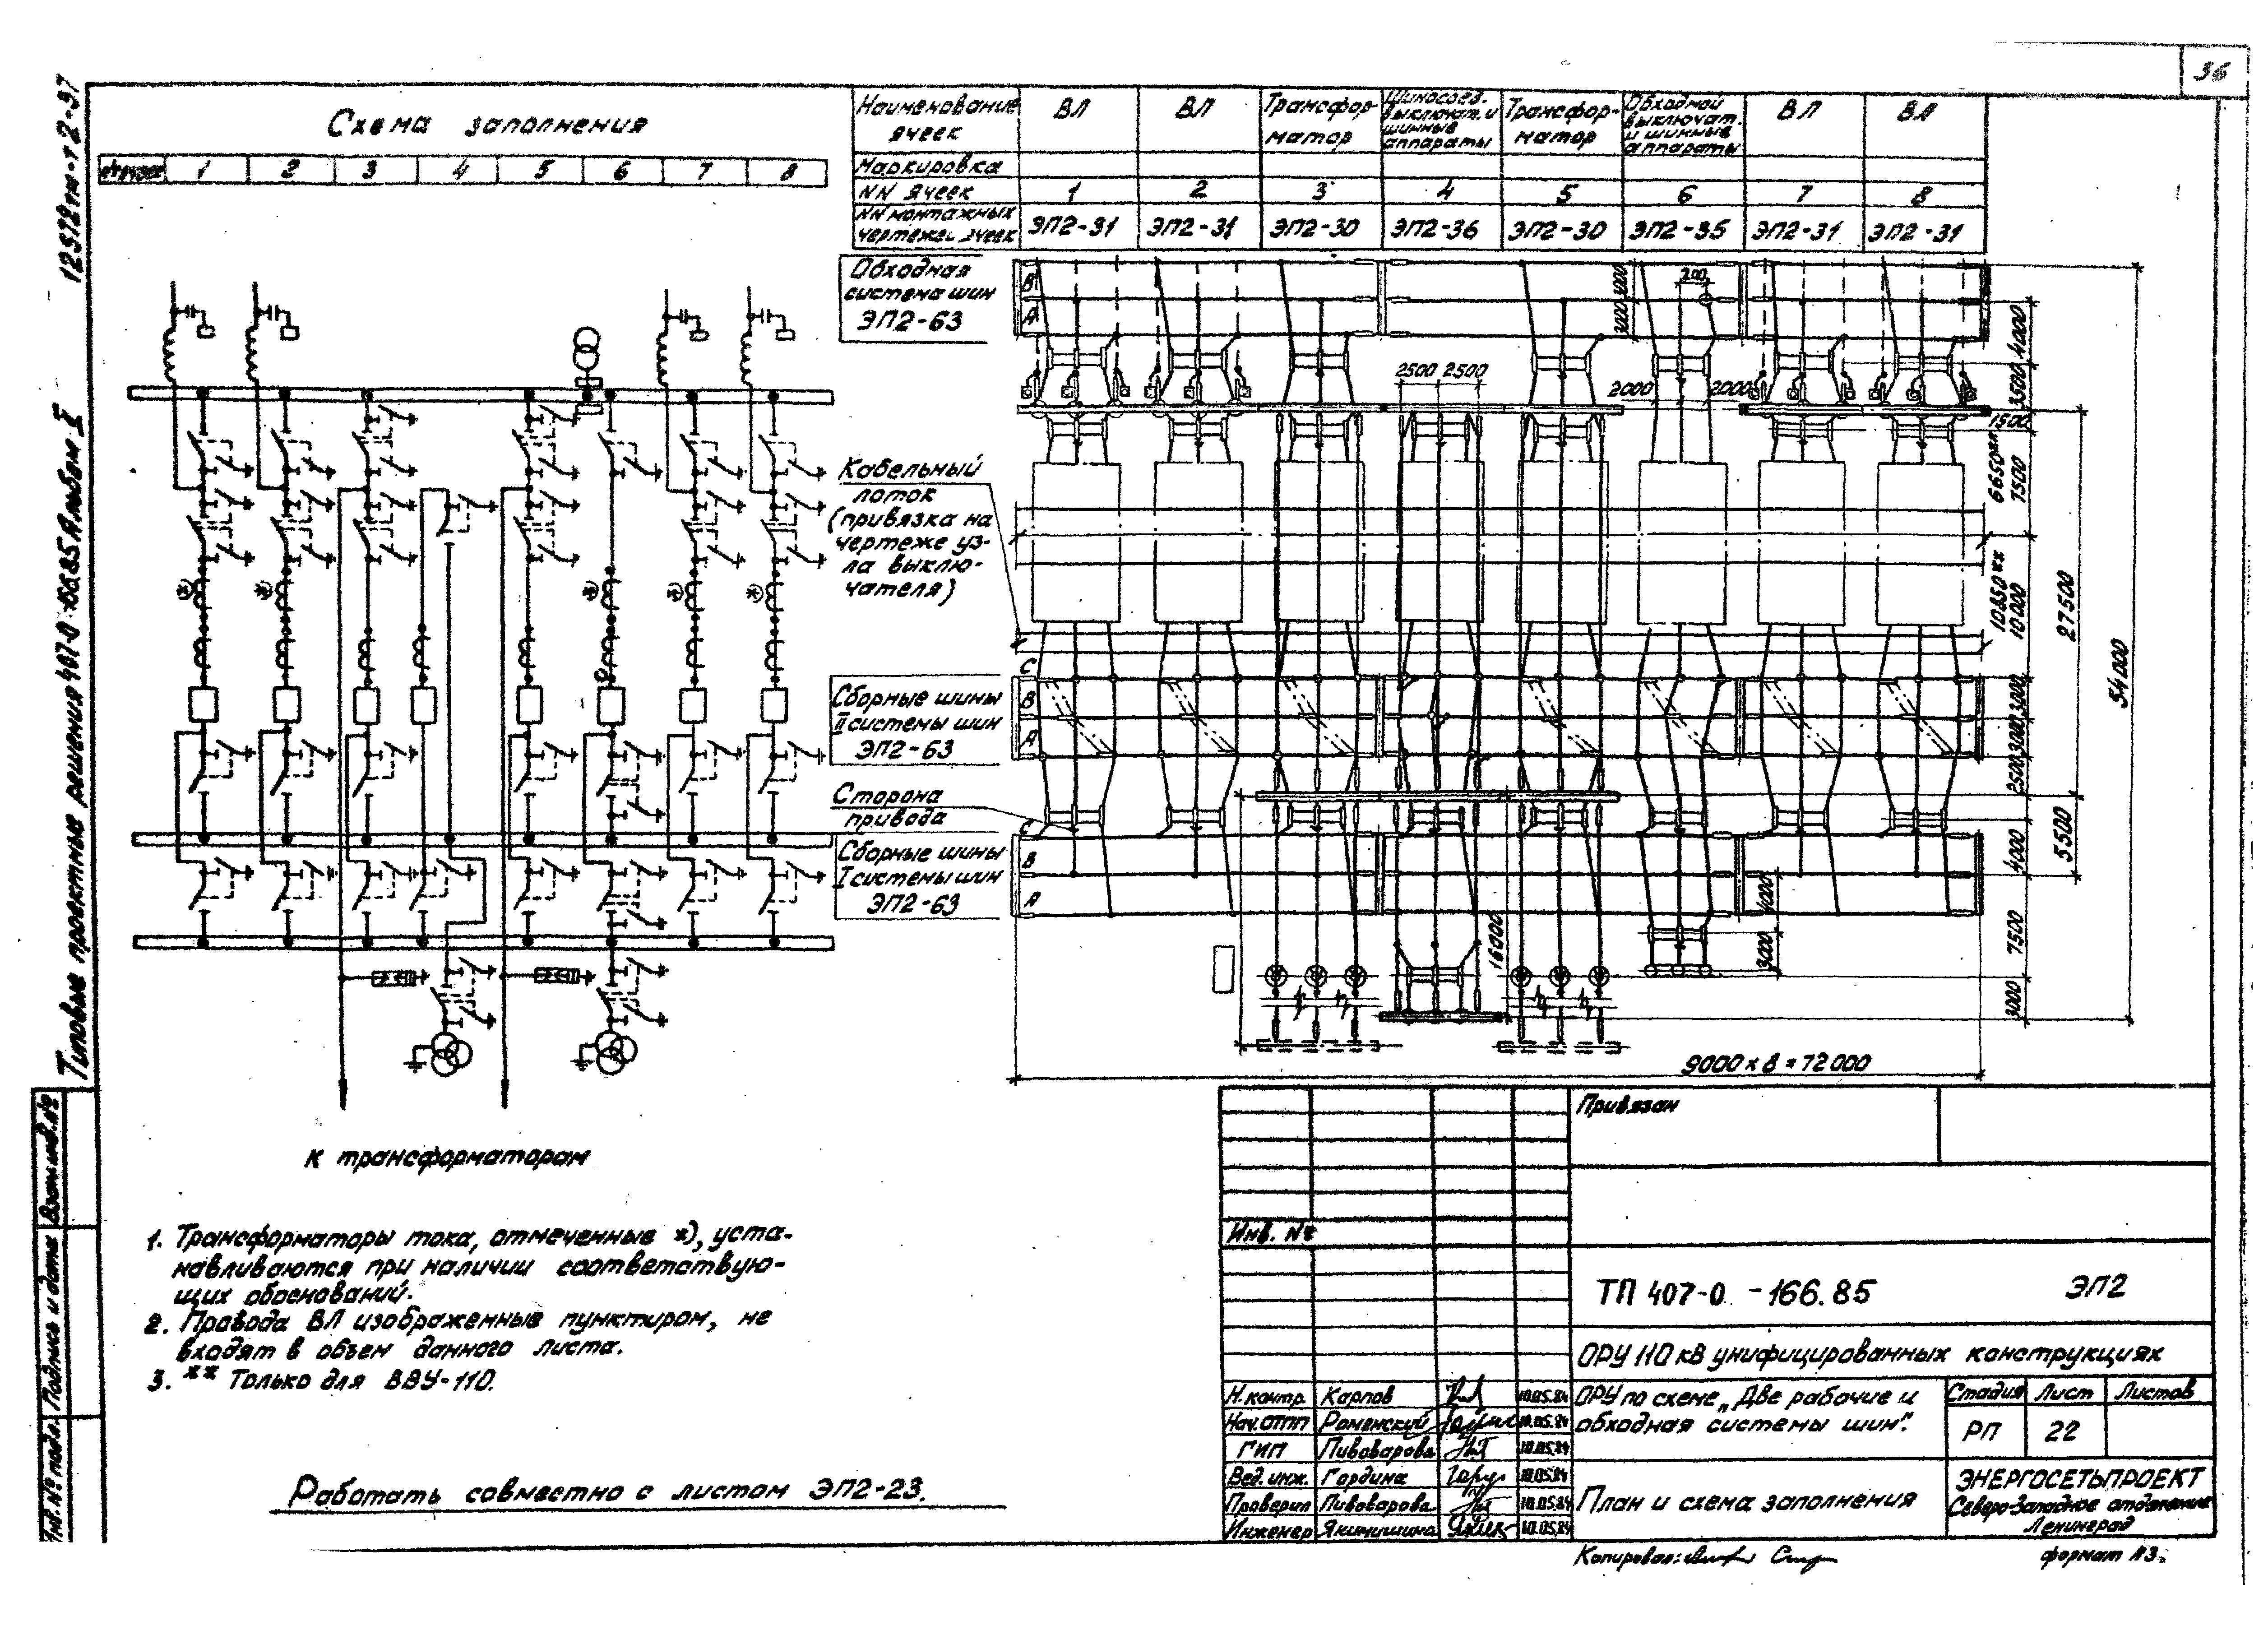 36
12572тм-т2-37
Типовые проектные решения 407-0-166.85 Альбом I
Схема заполнения
1 2 3 4 5 6 7 8
Наименование ячеек
ВЛ
ВЛ
Трансфор-
матор
Шиносоед.
выключат. и
шинные
аппараты
Трансфор-
матор
Обходной
выключат.
и шинные
аппараты
ВЛ
ВЛ
Маркировка
NN ячеек 1 2 3 4 5 6 7 8
NN монтажных
чертежей ячеек
ЭП2-31 ЭП2-31 ЭП2-30 ЭП2-36 ЭП2-30 ЭП2-35 ЭП2-31 ЭП2-31
Обходная
система шин
ЭП2-63
В
А
3000 3000
200
2500 2500
2000 2000
4000
3500
1500
6650**
7500
Кабельный
лоток
(привязка на
чертеже уз-
ла выклю-
чателя)
10850**
10000
27500
54000
Сборные шины
II системы шин
ЭП2-63
С
В
А
3000
3000
2500
Сторона
привода
Сборные шины
I системы шин
ЭП2-63
С
В
А
4000
5500
7500
3000
16000
4000
3000
9000 х 8 = 72000
*) *) *) *) *)
К трансформаторам
1. Трансформаторы тока, отмеченные *), уста-
навливаются при наличии соответствую-
щих обоснований.
2. Провода ВЛ изображенные пунктиром, не
входят в объем данного листа.
3. ** Только для ВВУ-110.
Работать совместно с листом ЭП2-23.
Взам.инв.№
Подпись и дата
Инв.№ подл.
Привязан
Инв. №
ТП 407-0 -166.85 ЭП2
ОРУ 110 кВ унифицированных конструкциях
Н.контр. Карпов 10.05.84
Нач.ОТП Роменский 10.05.84
ГИП Пивоварова 10.05.84
Вед.инж. Гордина 10.05.84
Проверил Пивоварова 10.05.84
Инженер Якиншина 10.05.84
ОРУ по схеме „Две рабочие и
обходная системы шин".
Стадия Лист Листов
РП 22
План и схема заполнения
ЭНЕРГОСЕТЬПРОЕКТ
Северо-Западное отделение
Ленинград
Копировал:
формат А3.